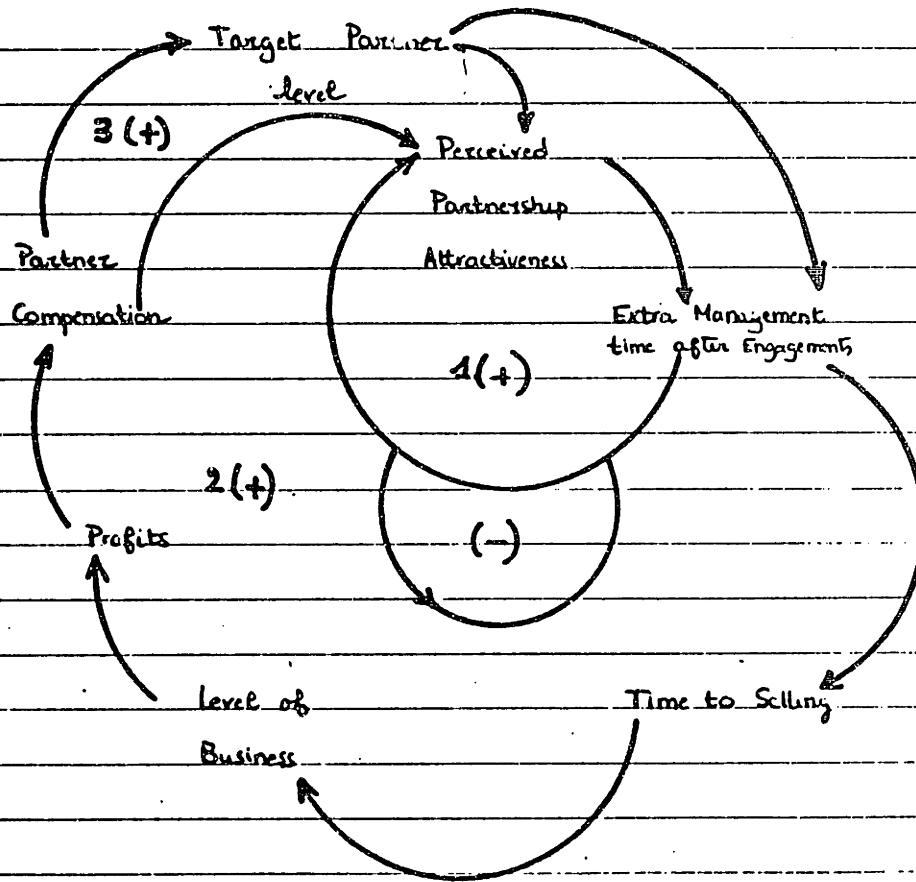 Target Partner
level
3 (+)
Perceived
Partnership
Attractiveness
Partner
Compensation
Extra Management
time after Engagements
1 (+)
2 (+)
Profits
(-)
Level of
Business
Time to Selling